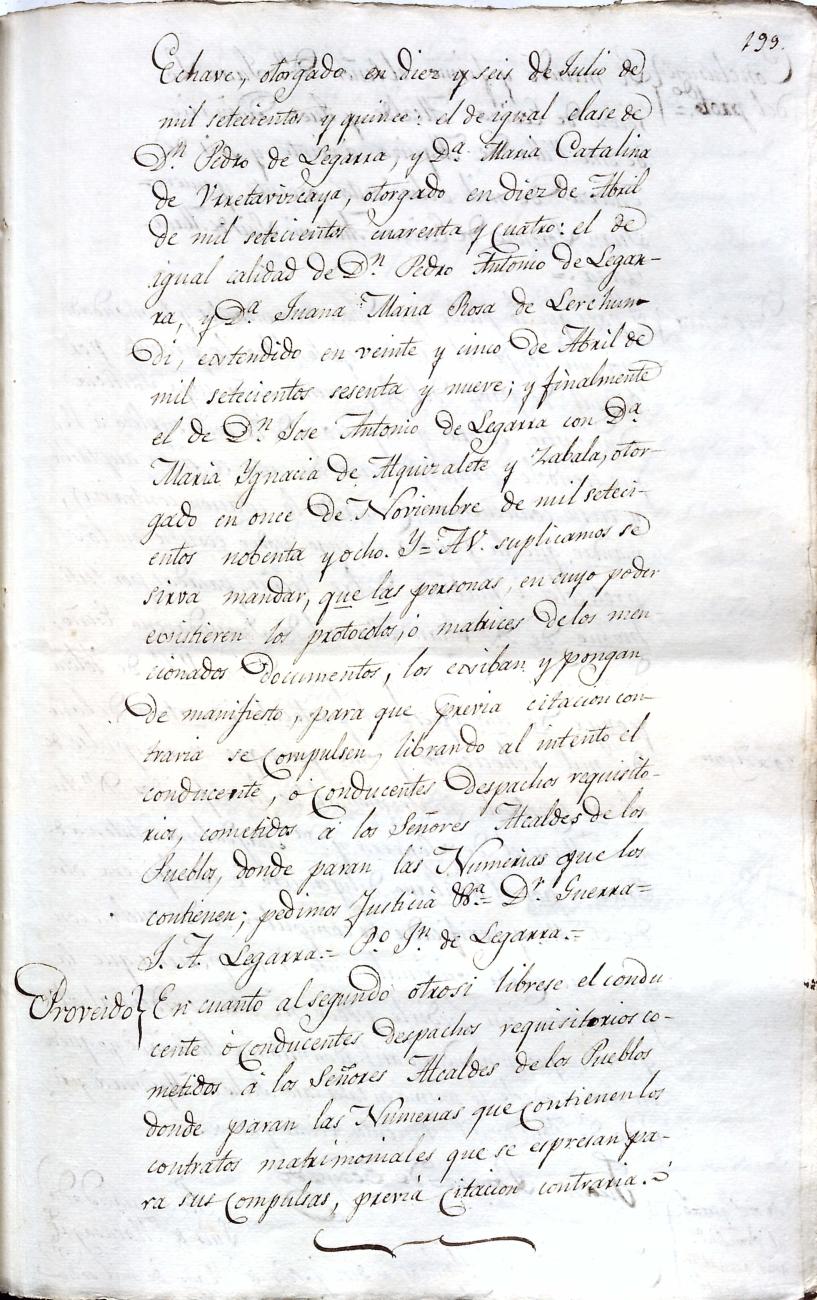 199.
Echave, otorgado en diez y seis de Julio de
mil setecientos y quince: el de igual clase de
Dn. Pedro de Legarra, y Da. Maria Catalina
de Vrretavizcaya, otorgado en diez de Abril
de mil setecientos cuarenta y cuatro: el de
igual calidad de Dn. Pedro Antonio de Legar-
ra, y Da. Juana Maria Rosa de Lerchun-
di, extendido en veinte y cinco de Abril de
mil setecientos sesenta y nueve; y finalmente
el de Dn. Jose Antonio de Legarra con Da.
Maria Ygnacia de Alquizalete y Zabala, otor-
gado en once de Noviembre de mil seteci-
entos nobenta y ocho. Y= A V. suplicamos se
sirva mandar, que las personas, en cuyo poder
existieren los protocolos, ó matrices de los men
cionados Documentos, los exiban y pongan
de manifiesto, para que previa citacion con-
traria se compulsen, librando al intento el
conducente, ó conducentes Despachos requisito-
rios, cometidos á los Señores Alcaldes de los
Pueblos, donde paran las Numerias que los
contienen; pedimos Justicia &a.= Dr. Guerra=
J. A. Legarra.= Po. Jn. de Legarra.=
Proveido} En cuanto al segundo otrosi librese el condu
cente ó conducentes Despachos requisitorios co-
metidos á los Señores Alcaldes de los Pueblos
donde paran las Numerias que contienen los
contratos matrimoniales que se espresan pa-
ra sus compulsas, previa citacion contraria. é